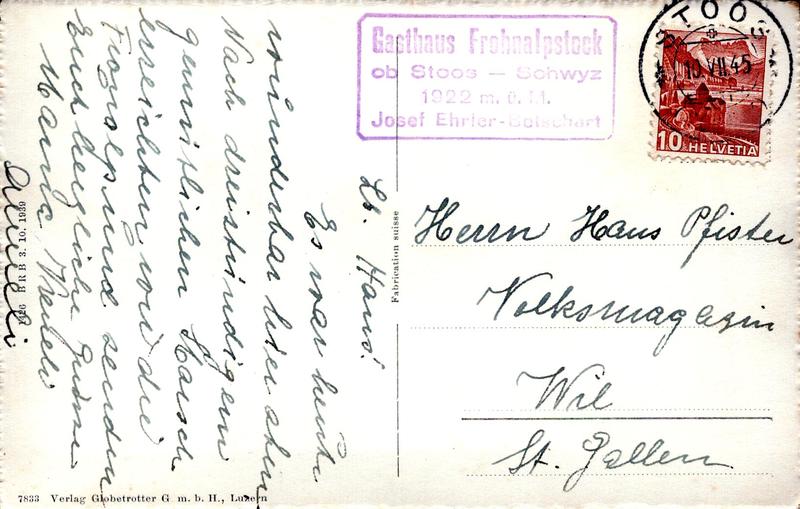 Gasthaus Frohnalpstock
ob Stoos – Schwyz
1922 m. ü. M.
Josef Ehrler-Betschart
STOOS
10.VII.45
10 HELVETIA
Lb. Hans!
Es war heute
wunderbar hier oben
Nach dreistündigem
gemütlichen Marsch
erreichten wir die
Frohnalp und senden
Euch herzliche Grüsse
Maria
Anneli
1926 BRB 3. 10. 1939
Fabrication suisse
Herrn Hans Pfister
Volksmagazin
Wil
St. Gallen
7833 Verlag Globetrotter G. m. b. H., Luzern